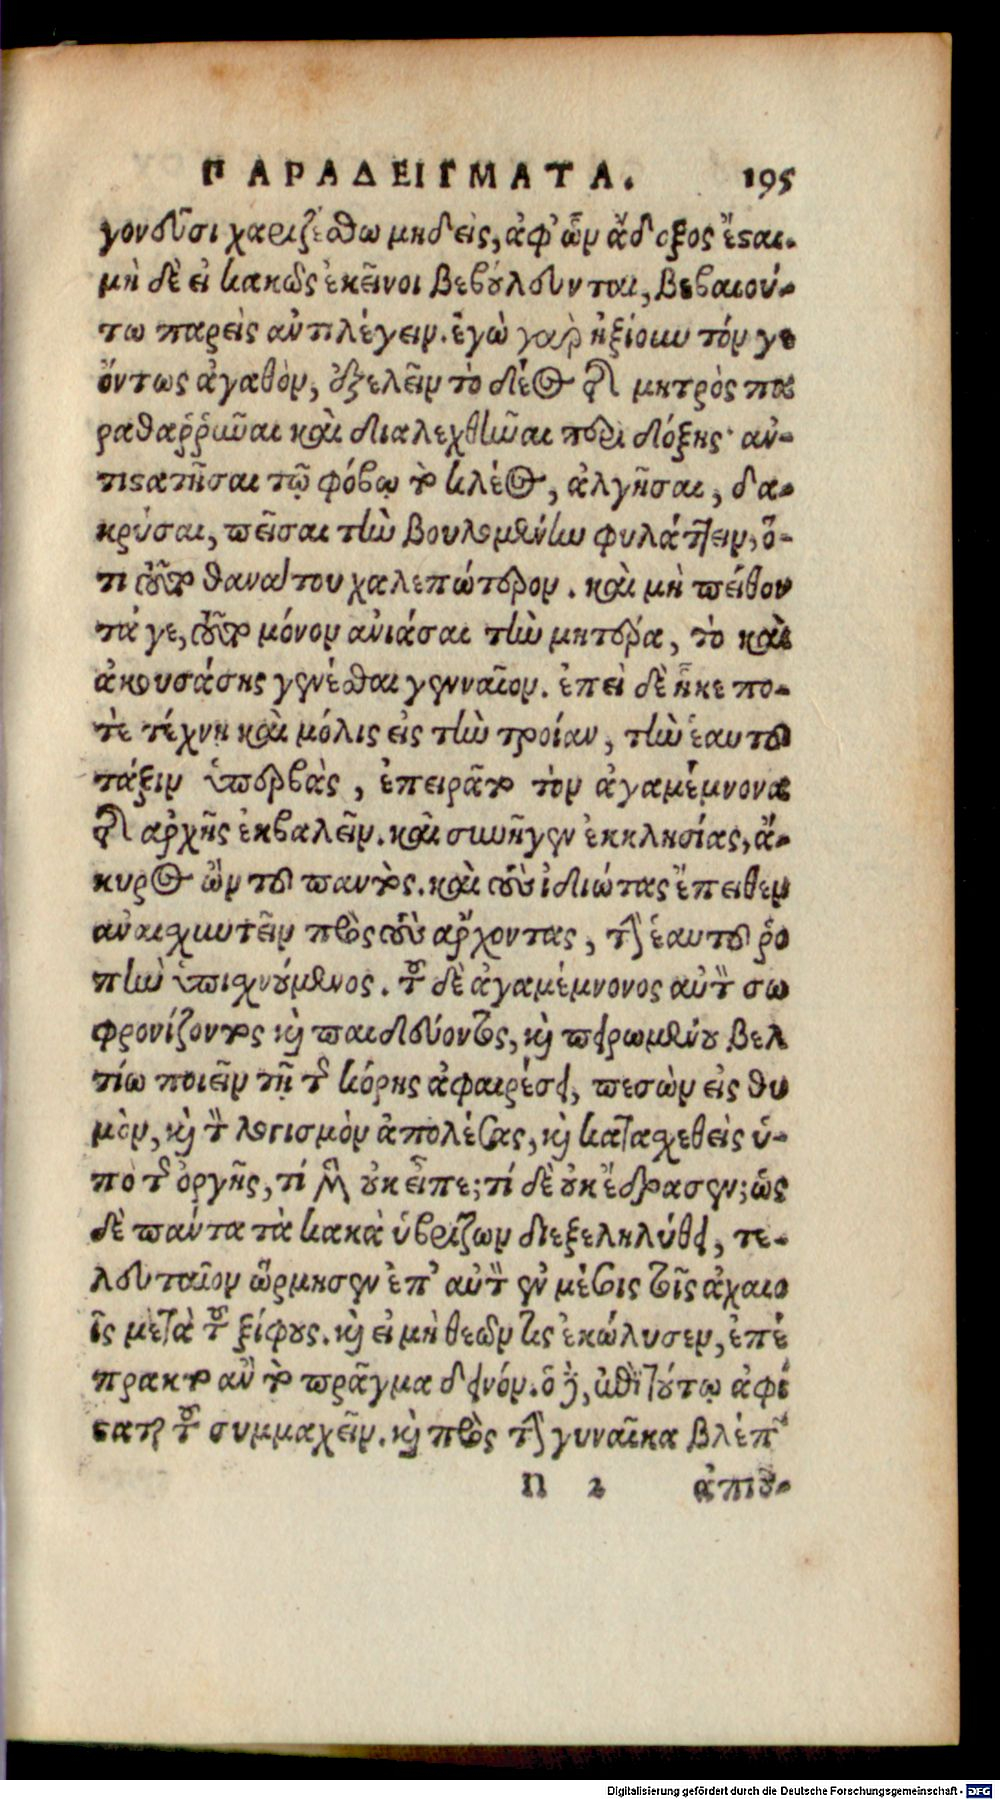 ΠΑΡΑΔΕΙΓΜΑΤΑ. 195
γονεῦσι χαριζέσθω μηδεὶς, ἀφ' ὧν ἄδοξος ἔσται.
μὴ δὲ εἰ κακῶς ἐκεῖνοι βεβούλευνται, βεβαιού-
τω παρεὶς ἀντιλέγειν. ἐγὼ γὰρ ἠξίουν τόν γε
ὄντως ἀγαθὸν, ἐξελεῖν τὸ δέος τῆς μητρὸς πα
ραθαῤῥῦναι καὶ διαλεχθῆναι περὶ δόξης· ἀν-
τιστῆσαι τῷ φόβῳ τὸ κλέος, ἀλγῆσαι, δα-
κρύσαι, πεῖσαι τὴν βουλομένην φυλάττειν, ὅ-
τι τοῦτο θανάτου χαλεπώτερον. καὶ μὴ πείθον
τά γε, τοῦτο μόνον ἀνιάσαι τὴν μητέρα, τὸ καὶ
ἀκουσάσης γενέσθαι γενναῖον. ἐπεὶ δὲ ἧκε πο-
τὲ τέχνῃ καὶ μόλις εἰς τὴν τροίαν, τὴν ἑαυτοῦ
τάξιν ὑπερβὰς, ἐπειρᾶτο τὸν ἀγαμέμνονα
τῆς ἀρχῆς ἐκβαλεῖν. καὶ συνῆγεν ἐκκλησίας, ἄ-
κυρος ὢν τοῦ παντὸς. καὶ τοὺς ἰδιώτας ἔπειθεν
ἀναισχυντεῖν πρὸς τοὺς ἄρχοντας, τὴν ἑαυτοῦ ῥο
πὴν ὑπισχνούμενος. τοῦ δὲ ἀγαμέμνονος αὐτὸν σω
φρονίζοντος καὶ παιδεύοντος, καὶ πειρωμένου βελ
τίω ποιεῖν τῇ τῆς κόρης ἀφαιρέσει, πεσὼν εἰς θυ
μὸν, καὶ τὸν λογισμὸν ἀπολέσας, καὶ κατασχεθεὶς ὑ-
πὸ τῆς ὀργῆς, τί μὲν οὐκ εἶπε; τί δὲ οὐκ ἔδρασεν; ὡς
δὲ πάντα τὰ κακὰ ὑβρίζων διεξεληλύθει, τε-
λευταῖον ὥρμησεν ἐπ' αὐτὸν ἐν μέσοις τοῖς ἀχαιο
ῖς μετὰ τοῦ ξίφους. καὶ εἰ μὴ θεῶν τις ἐκώλυσεν, ἐπέ
πρακτο ἂν τὸ πρᾶγμα δεινόν. ὁ δὲ, ἐπὶ τούτῳ ἀφί
σταται τοῦ συμμαχεῖν. καὶ πρὸς τὴν γυναῖκα βλέπων
N 2 ἀπιοῦ-
Digitalisierung gefördert durch die Deutsche Forschungsgemeinschaft - DFG